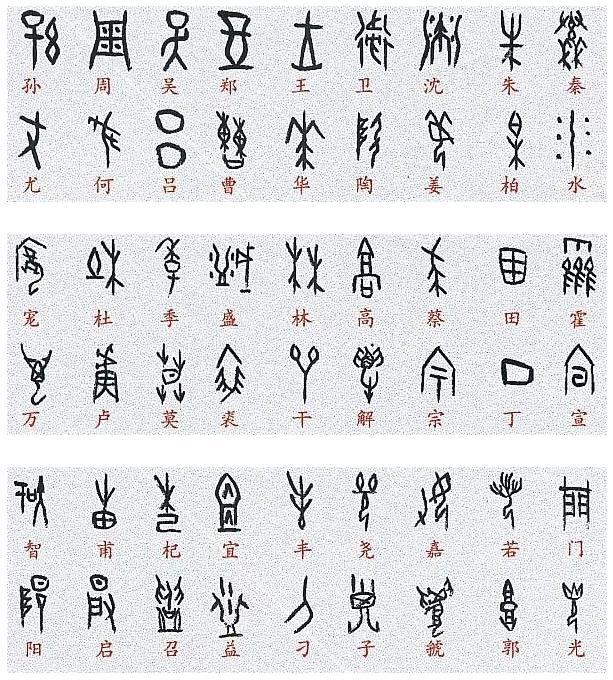 孙 周 吴 郑 王 卫 沈 朱 秦
尤 何 吕 曹 华 陶 姜 柏 水
宠 杜 季 盛 林 高 蔡 田 霍
万 卢 莫 裘 干 解 宗 丁 宣
智 甫 杞 宜 丰 尧 嘉 若 门
阳 启 召 益 刁 子 虢 郭 光